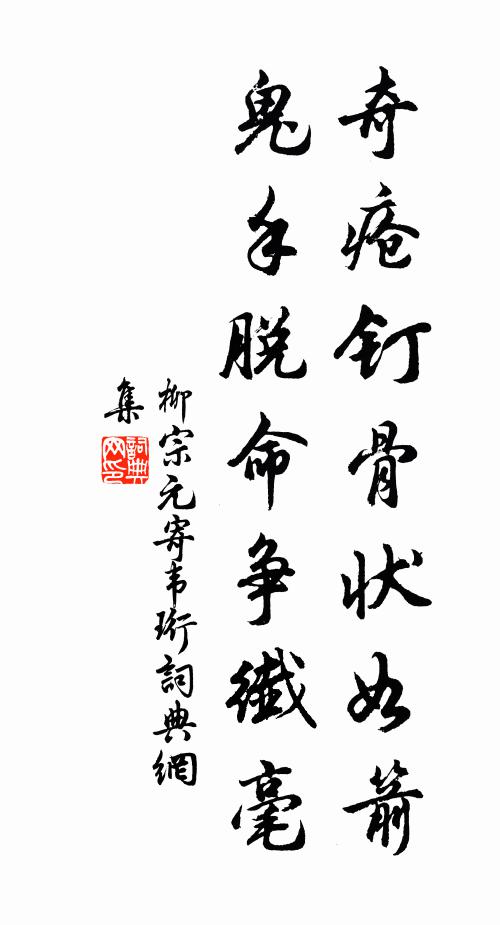 奇疮钉骨状如箭
鬼手脱命争纤毫
柳宗元寄韦珩詞典網
集
詞典
网印